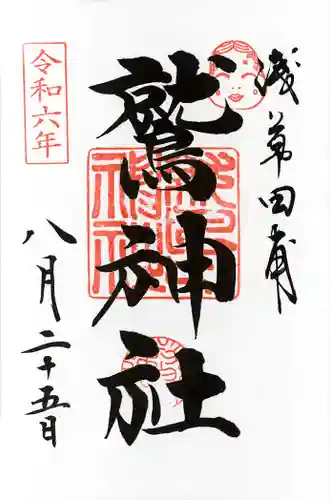 浅草田甫
鷲神社
令和六年
八月二十五日